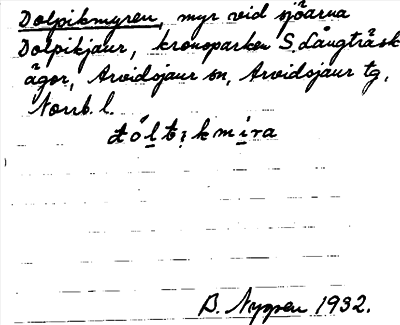 Dolpikmyren, myr vid sjöarna
Dolpikjaur, kronoparken S. Långträsk
ägor, Arvidsjaur sn, Arvidsjaur tg,
Norrb. l.
B. Nyppen 1932.